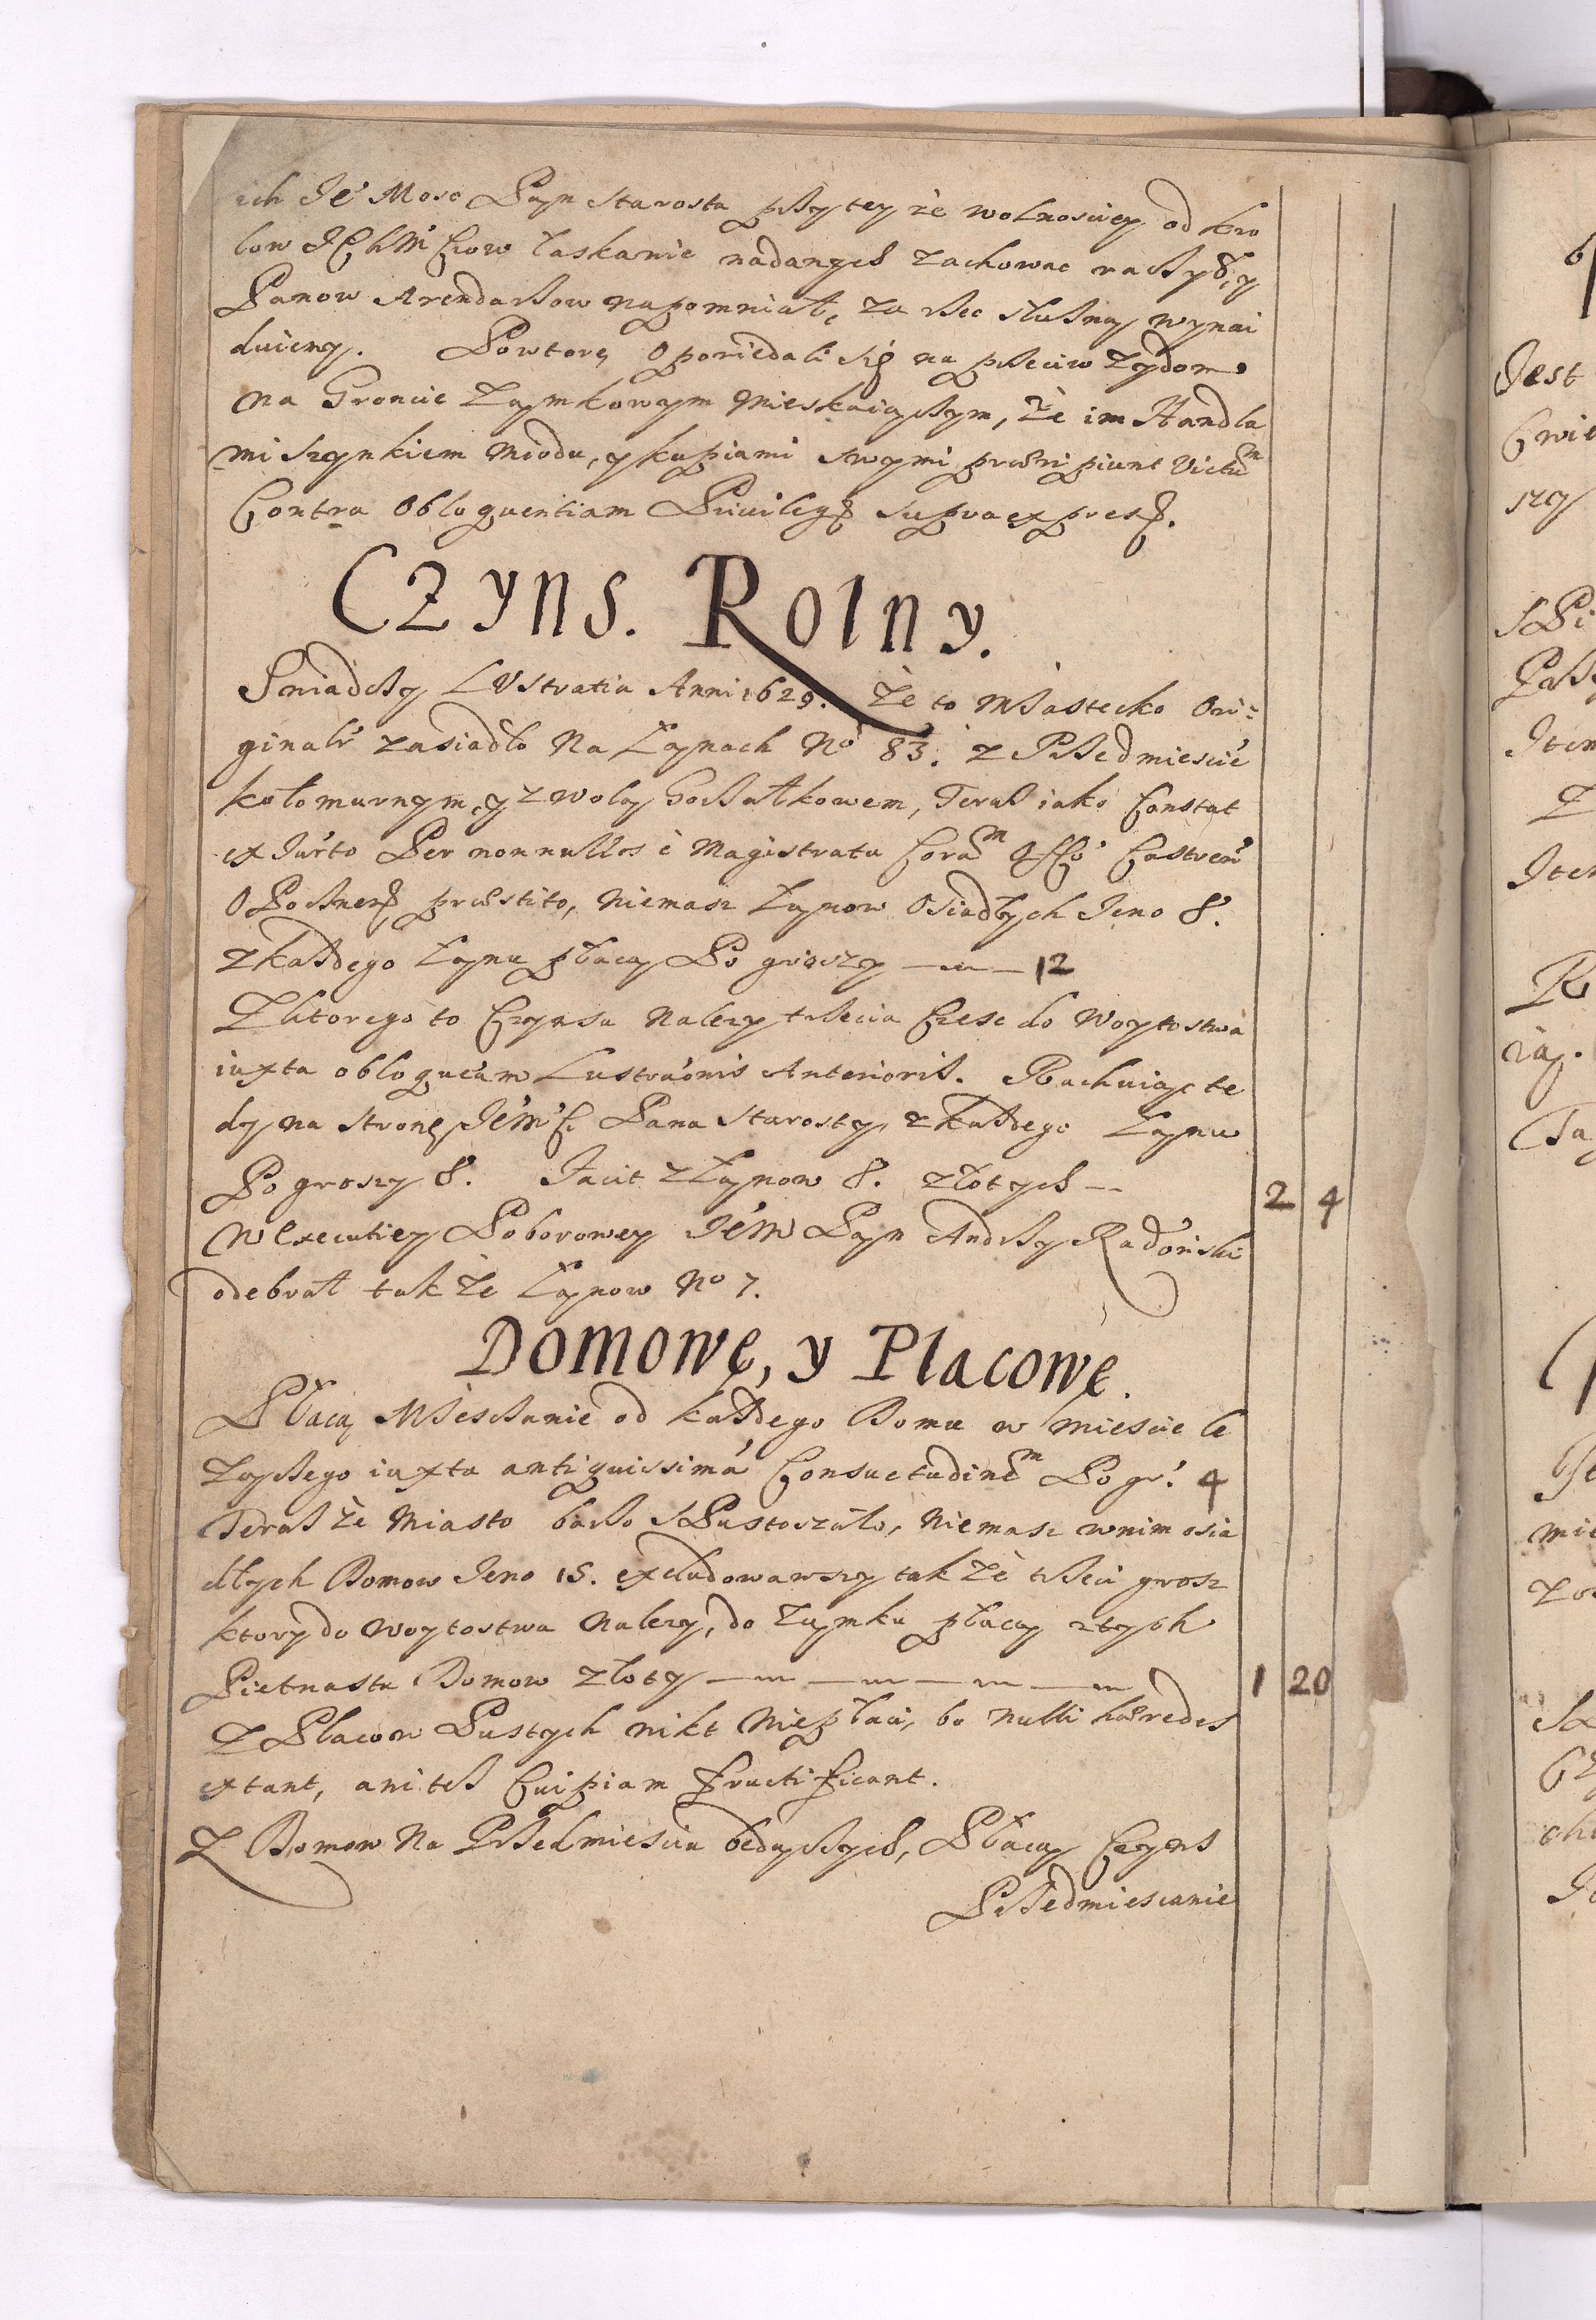 ich Je Mosc Pan Starosta przy tey ze wolnosciey od kro
low JchMciow łaskawie nadanych zachowac raczył, y
Panow Arendarzow napomniał, za rzec słuszną wynai
duiemy. Powtore, opowiedali się na przeciw Zydom
na Groncie Zamkowym mieskaiączym, Ze im Handla
mi szynkiem miodu, y kupiami swymi præripiunt victum
Contra obloquentiam Privilegy supra express.
CZYNS. ROLNY.
Swiadczy LUstratia Anni 1629. Ze to Miastecko Ori-
ginalr zasiadło na Łanach No 83. z Przedmiescie
kołomurnym, y z wolą Goszałkowem, Teraz iako Constat
ex Jurto Per nonnullos è Magistratu Coram Offo Castren
O Posnens præstito, niemasz Łanow Osiadłych Jeno 8.
z każdego Łanu płacą Po groszy 12
Z ktorego to Czynsu nalezy trzecia Czesc do Woytostwa
iuxta obloquam Lustraonis Anterioris. Rachuiąc te
dy na stronę JeMC Pana Starosty z każdego Łanu
Po groszy 8. Facit z Łanow 8. złotych 2 4
W Executiey Poborowey JeM Pan Andrzy Radonski
odebrał tak ze Łanow No 7.
DOMOWE, y Placowe.
Płacą Miesczanie od każdego Domu w miescie le
ząchego iuxta antiquissima Consuetudinem Po gr. 4
Teraz ze Miasto barzo sPustoszało, niemasz w nim osia
dłych Domow Jeno 15. excludowawszy tak ze trzeci grosz
ktory do woytostwa nalezy, do Zamku płacą z tych
Pietnastu Domow złoty 1 20
Z Placow Pustych nikt nie płaci, bo nulli hæredes
extant, ani tez Cuipiam fructificant.
Z Domow na Przedmiesciu bedączych, Płacą Czyns
Przedmiescanie